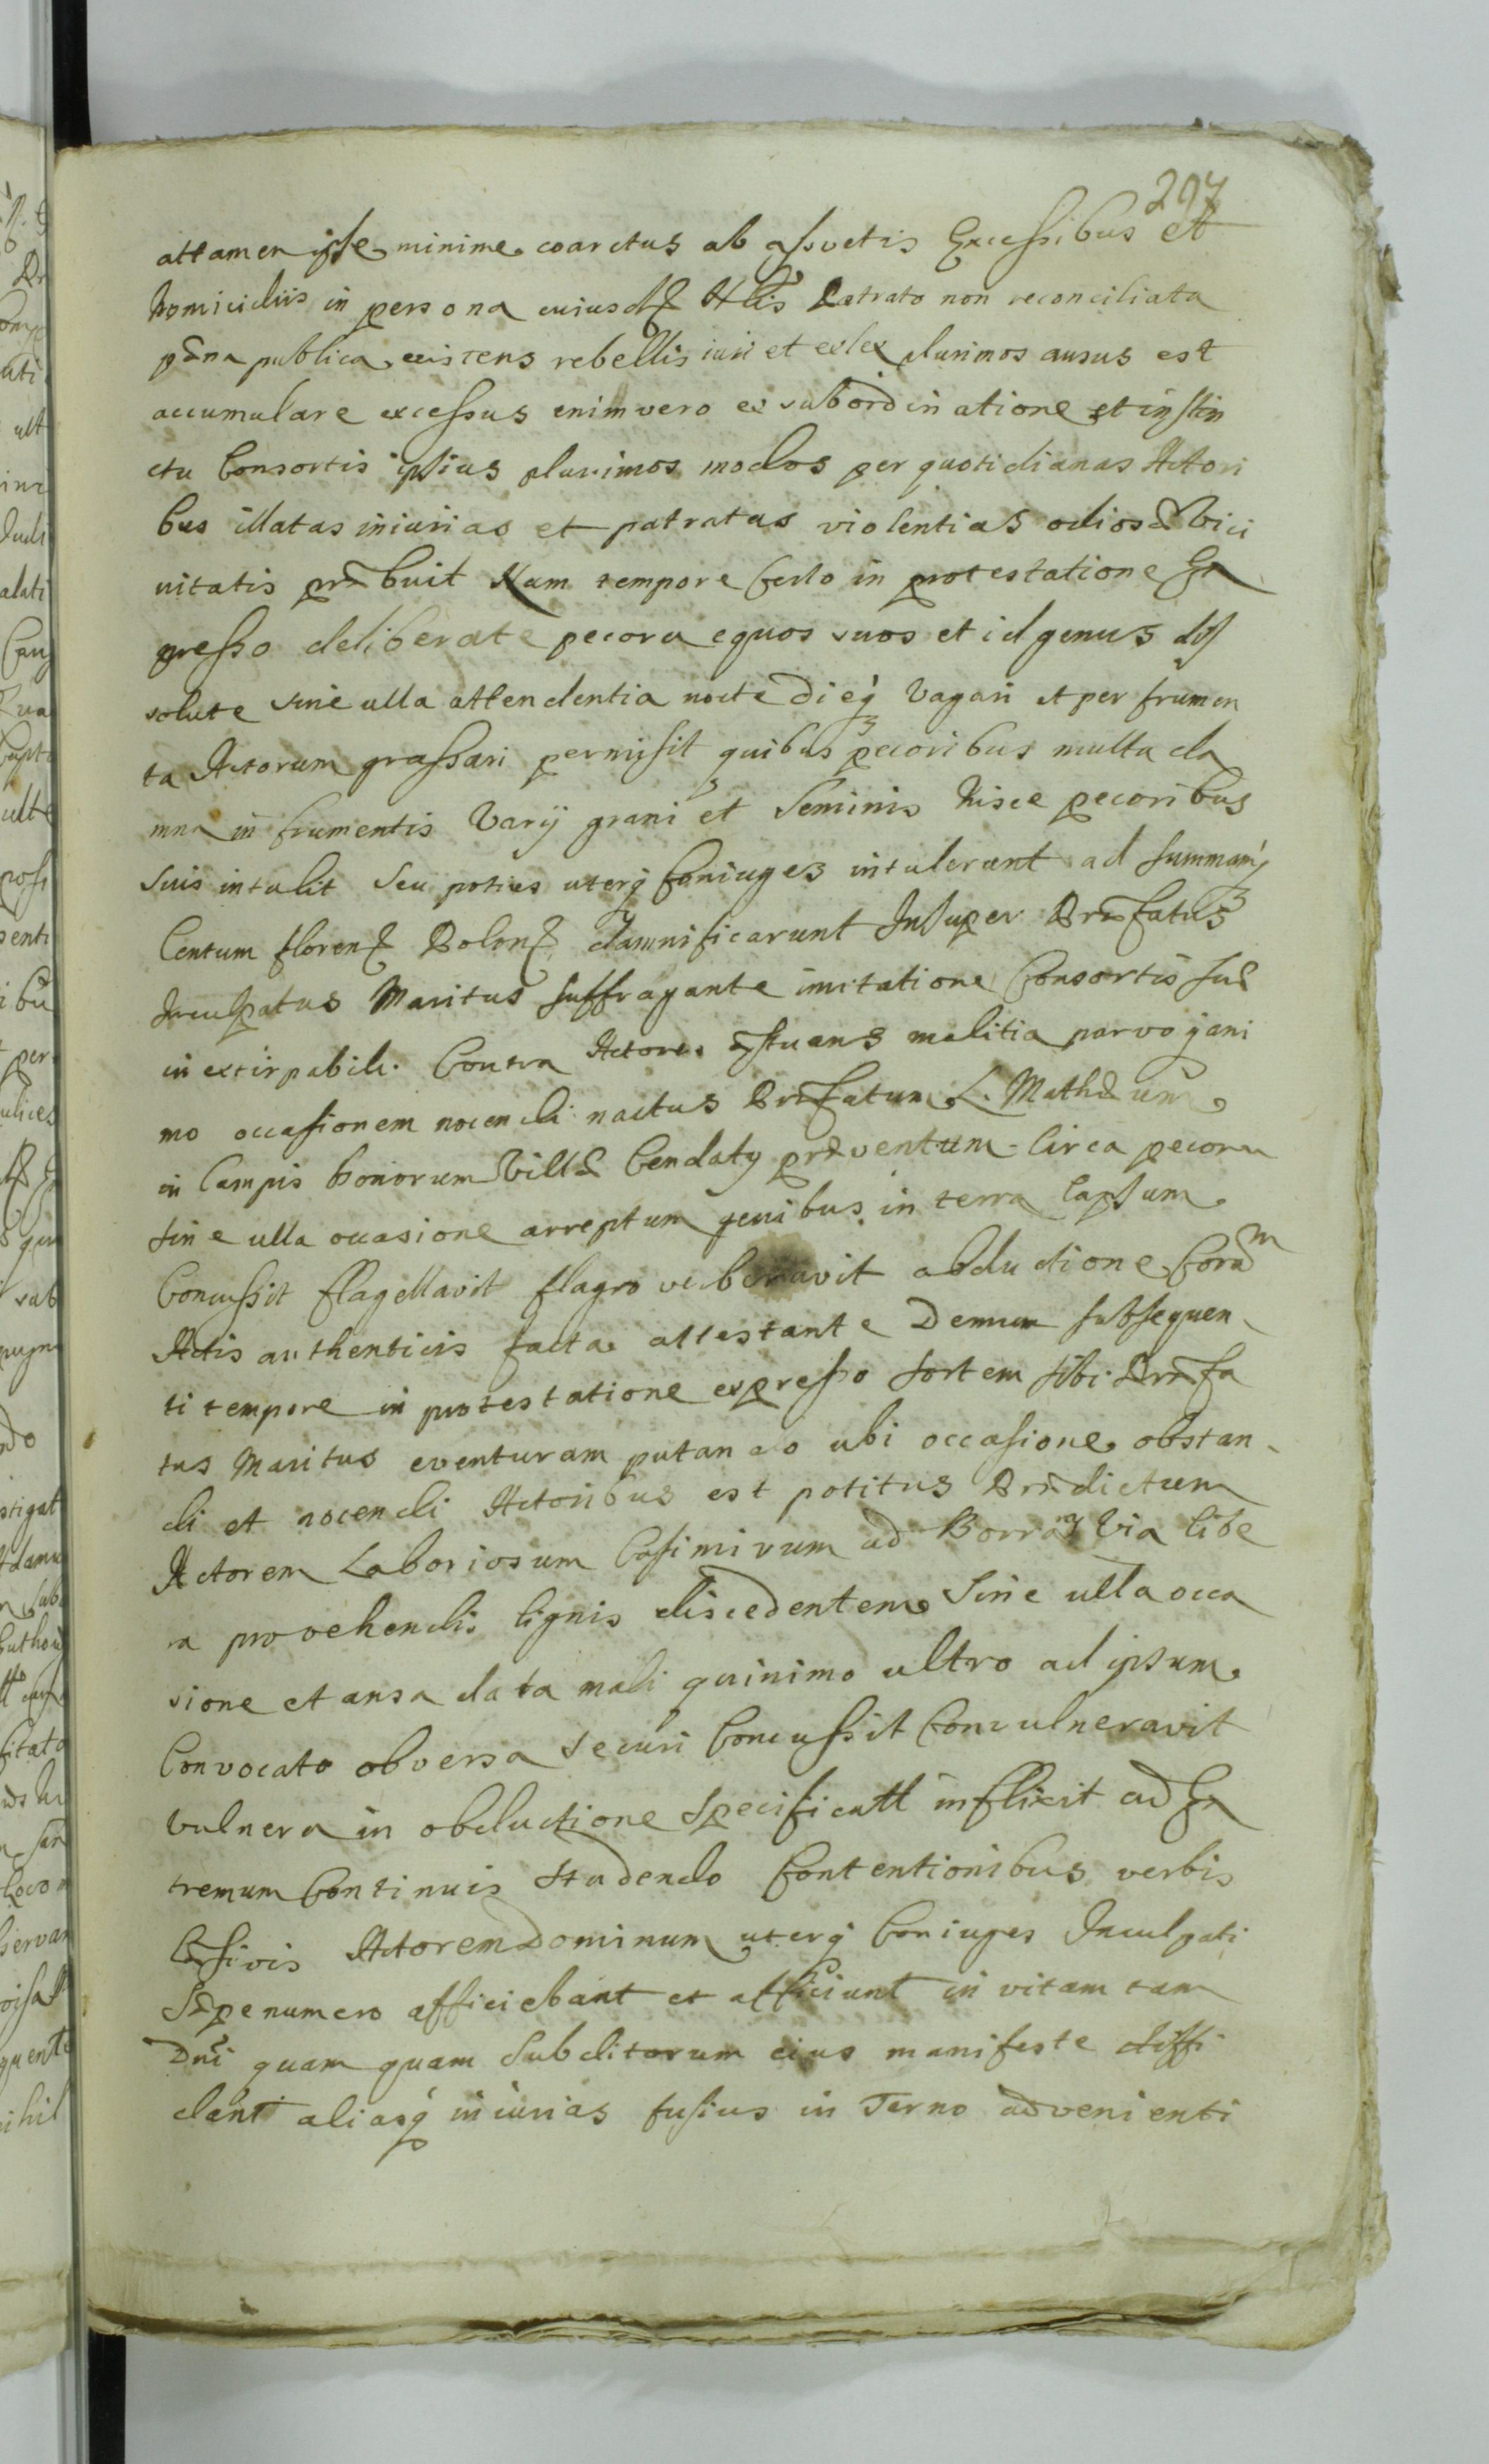 297
attamen ipse minime coarctus ab assvetis Excessibus et
homicidiis in persona cuiusdē Nlis Patrato non reconciliata
pœna publica existens rebellis iuri et exlex plurimos ausus est
accumulare excessus enim vero ex subordinatione et instin
ctu Consortis ipsius plurimos modos per quotidianas Actori
bus illatas iniurias et patratas violentias odiosæ Vici
nitatis præbuit Nam tempore certo in protestatione Ex
presso deliberate pecora equos suos et id genus dis
solute sine ulla attendentia nocte dieq Vagari et per frumen
ta Actorum grassari permisit quibus pecoribus multa da
mna in frumentis Varij grani et Seminis hisce pecoribus
suis intulit Seu potius uterq Coniuges intulerunt ad summam
Centum floren Polon damnificarunt Insuper Præfatus
Inculpatus Maritus suffragante imitatione Consortis suæ
inextirpabili Contra Actores æstuans malitia parvo
mo occasionem nocendi nactus Præfatum L. Mathæum
in Campis bonorum Villæ Bendaty præventum Circa pecora
sine ulla occasione arreptum genibus in terra lapsum
Concussit flagellavit flagro verberavit obductione Coram
Actis authenticis facta attestante Demum subsequen
ti tempore in protestatione expresso sortem sibi Præfa
tus Maritus eventuram putando ubi occasione obstan
di et nocendi Actoribus est potitus Prædictum
Actorem Laboriosum Casimirum ad Borra Via libe
ra provehendis lignis discedentem Sine ulla occa
sione et ansa data mali quinimo ultro ad ipsum
Convocato obversa securi Concussit Convulneravit
Vulnera in obductione specificatt inflixit ad Ex
tremum Continuis studendo Contentionibus verbis
Læsivis Actorem Dominum uterq Coniuges Inculpati
Sæpenumero afficiebant et afficiunt in vitam tam
Dni quam quam Subditorum eius manifeste diffi
dant aliasq iniurias fusius in Termo advenienti